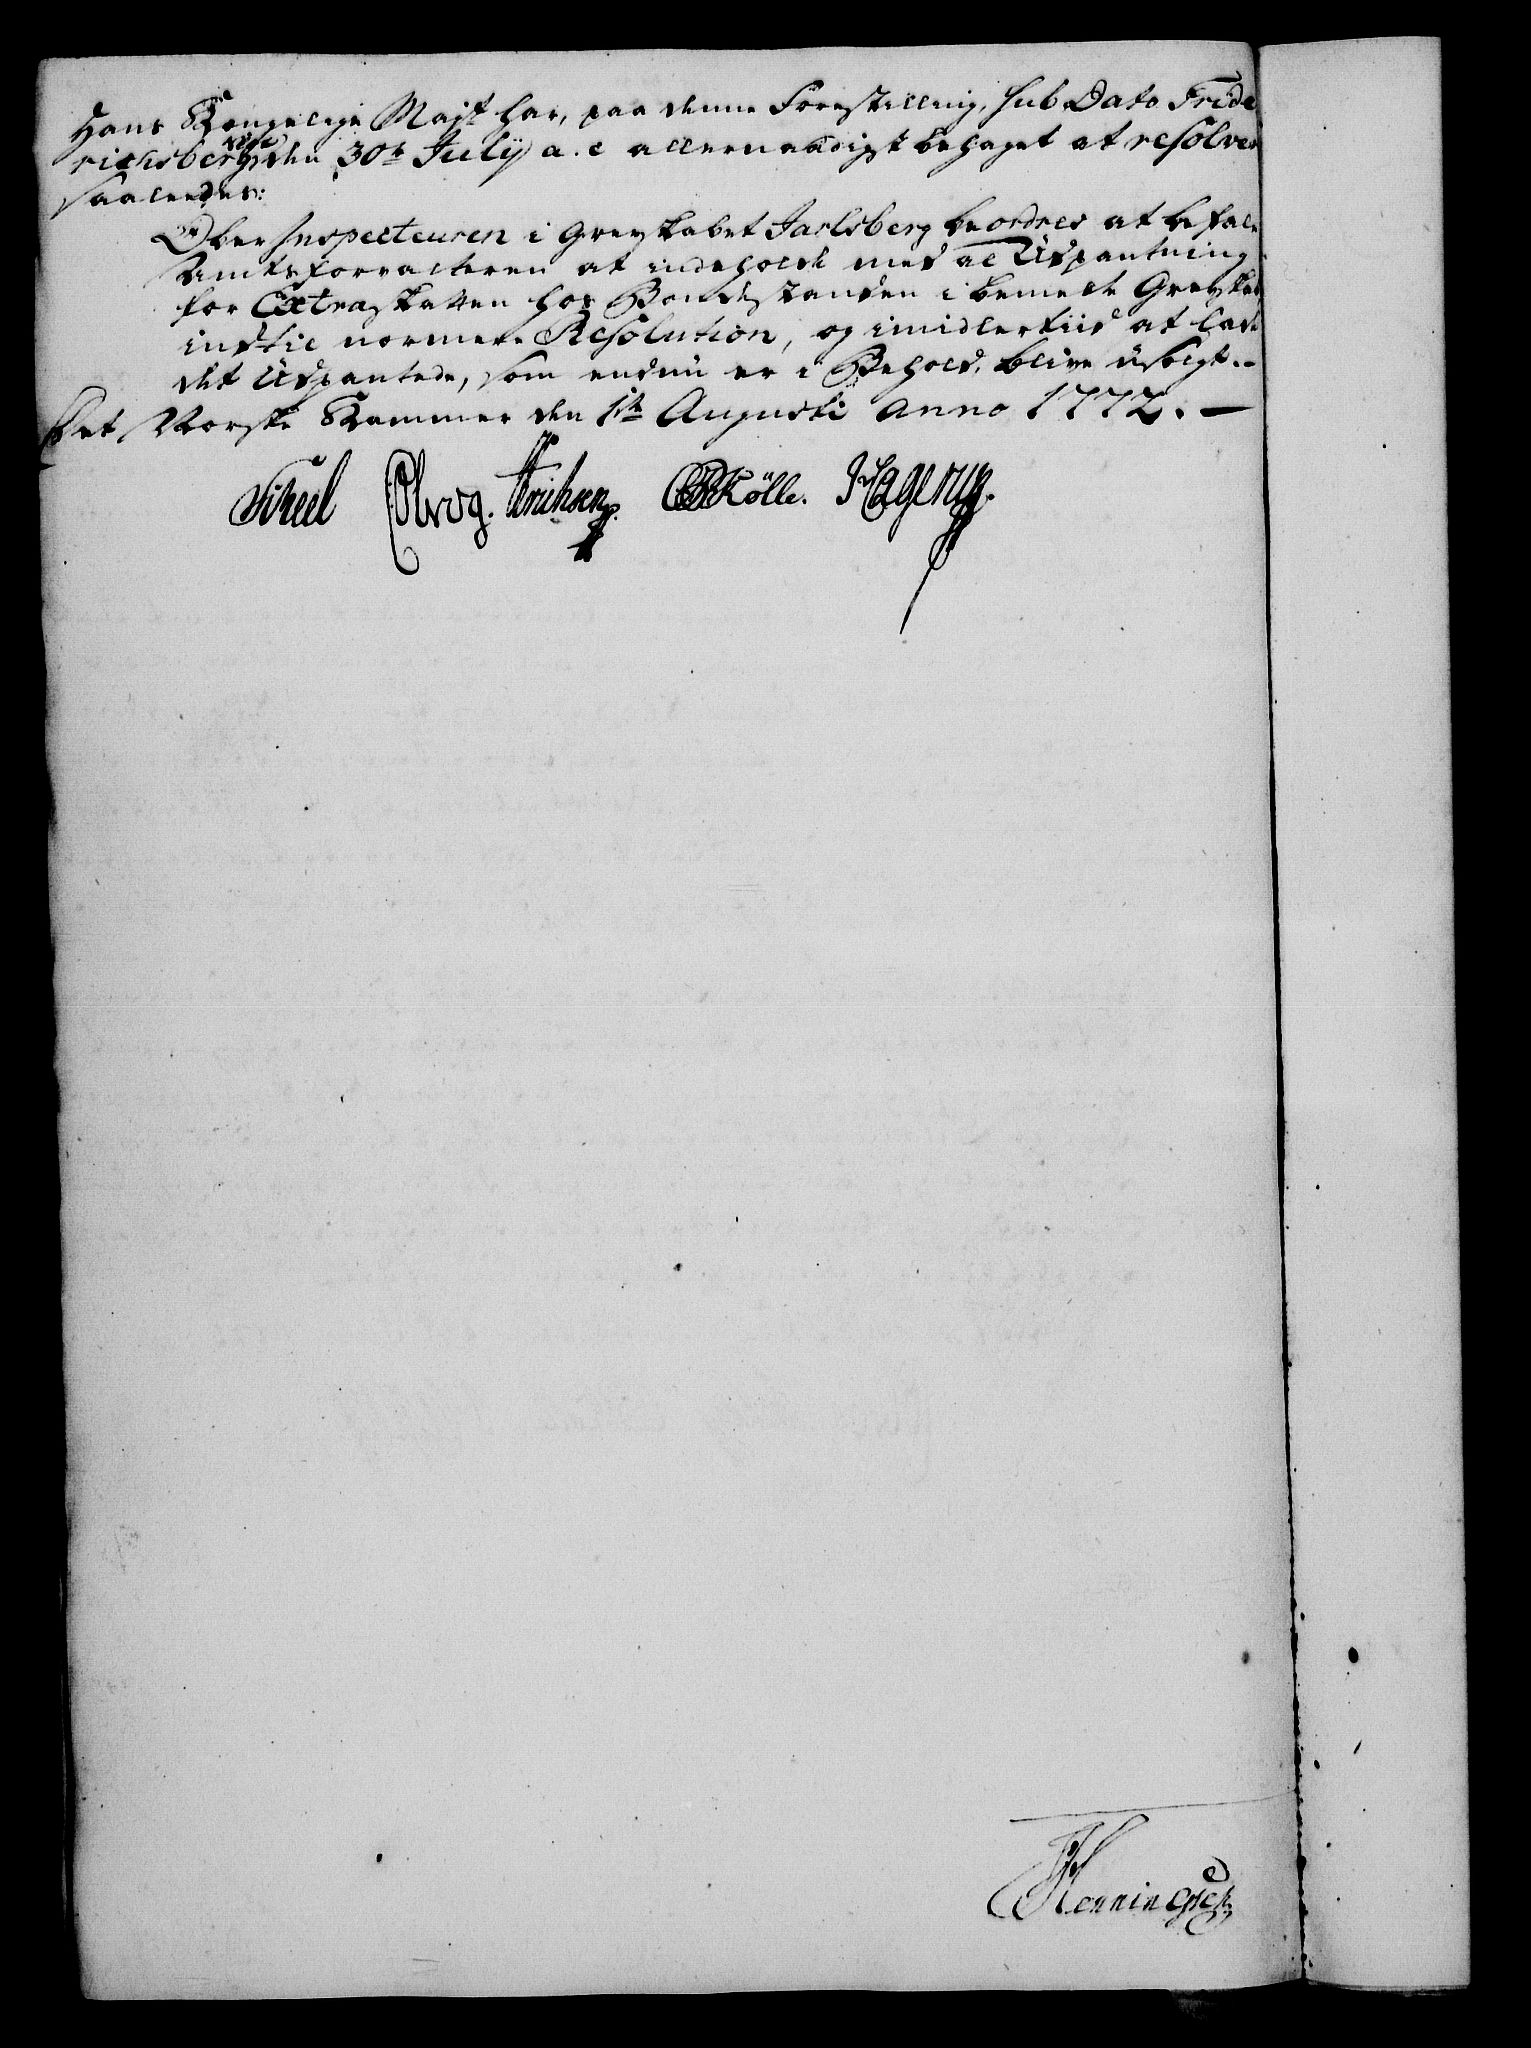 Hans Kongelige Majst har, paa denne Forestilling, sub Dato Fride
richsberg den 30te July a. c. allernaadigst behaget at resolvere
saaledes:
Ober Inspecteuren i Grevskabet Jarlsberg beordres at befale
Amtsforvalteren at indeholde med al Udpantning
for Extraskatten hos Bondestanden i bemelte Grevskab
indtil nærmere Resolution, og imidlertiid at lade
det Udpantede, som endnu er i Behold, blive usolgt.-
Det Norske Kammer den 1te Augusti Anno 1772. —
Scheel Erichsen Kölle. Hagerup.